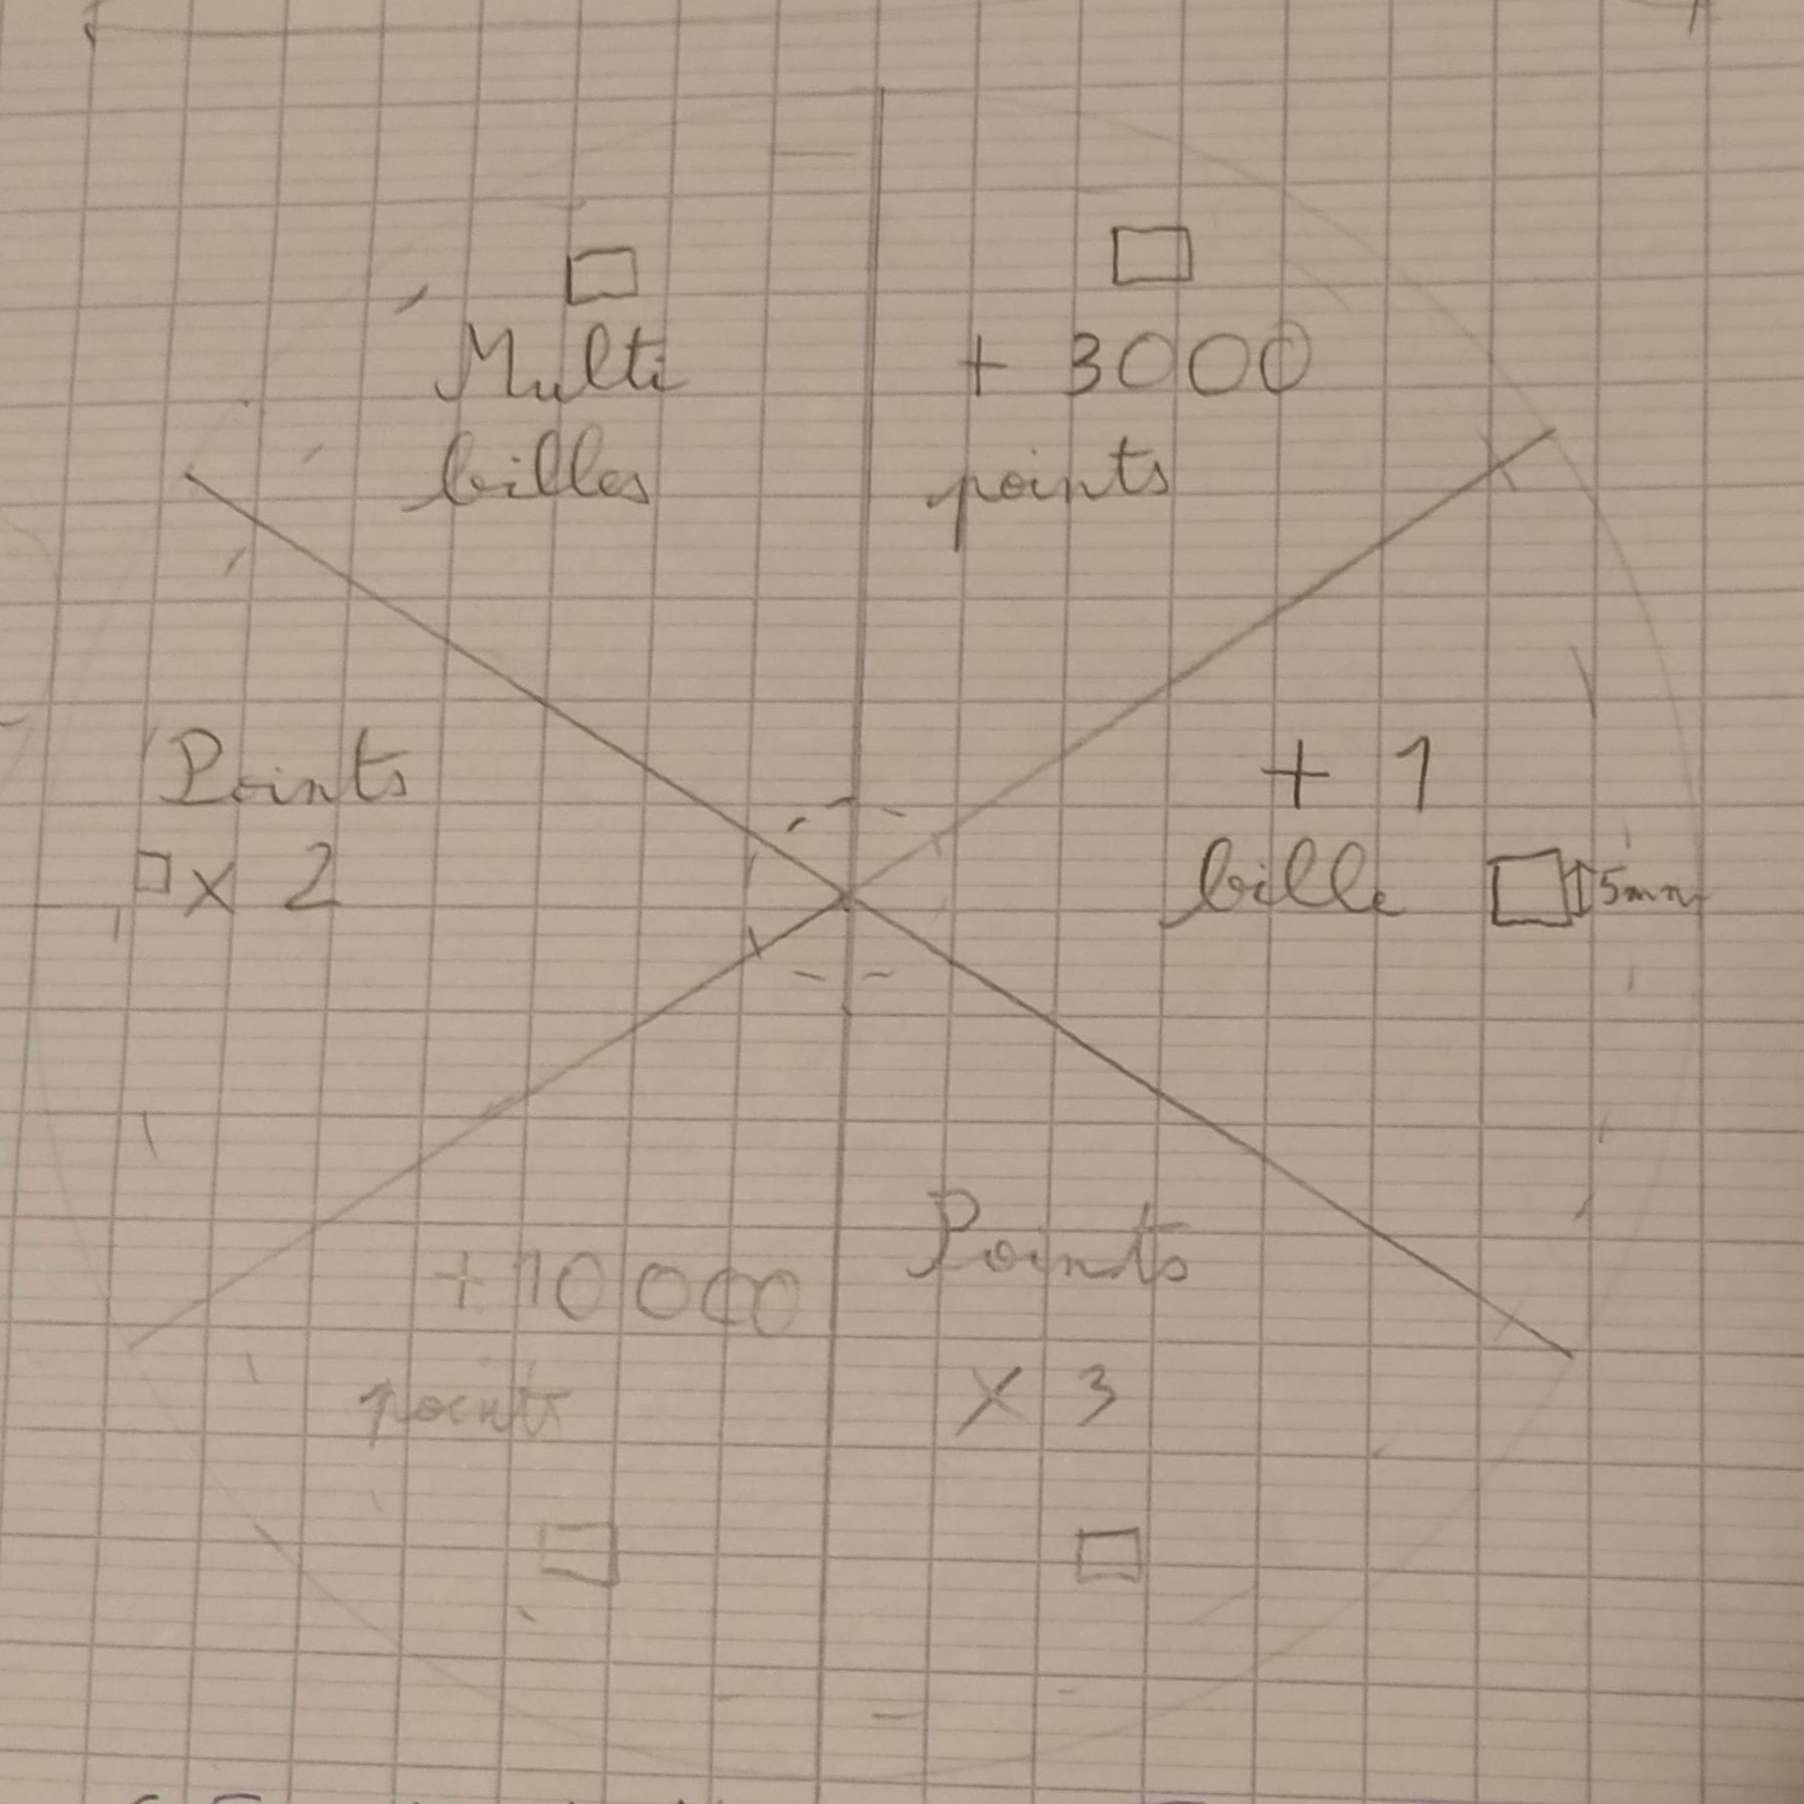 Multi
billes
+ 3000
points
Points
x 2
+ 1
bille
5mm
+10 000
points
Points
x 3